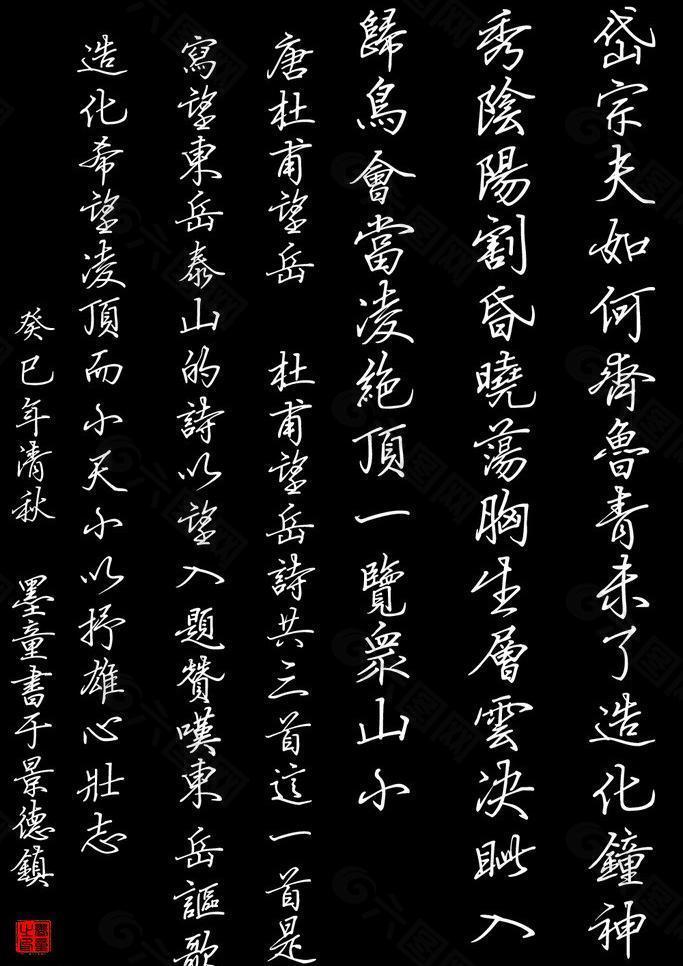 岱宗夫如何齊魯青未了造化鐘神
秀陰陽割昏曉蕩胸生層雲决眦入
歸鳥會當凌絶頂一覽衆山小
唐杜甫望岳 杜甫望岳詩共三首這一首是
寫望東岳泰山的詩以望入題贊嘆東岳謳歌
造化希望凌頂而小天小以抒雄心壯志
癸巳年清秋 墨童書于景德鎮